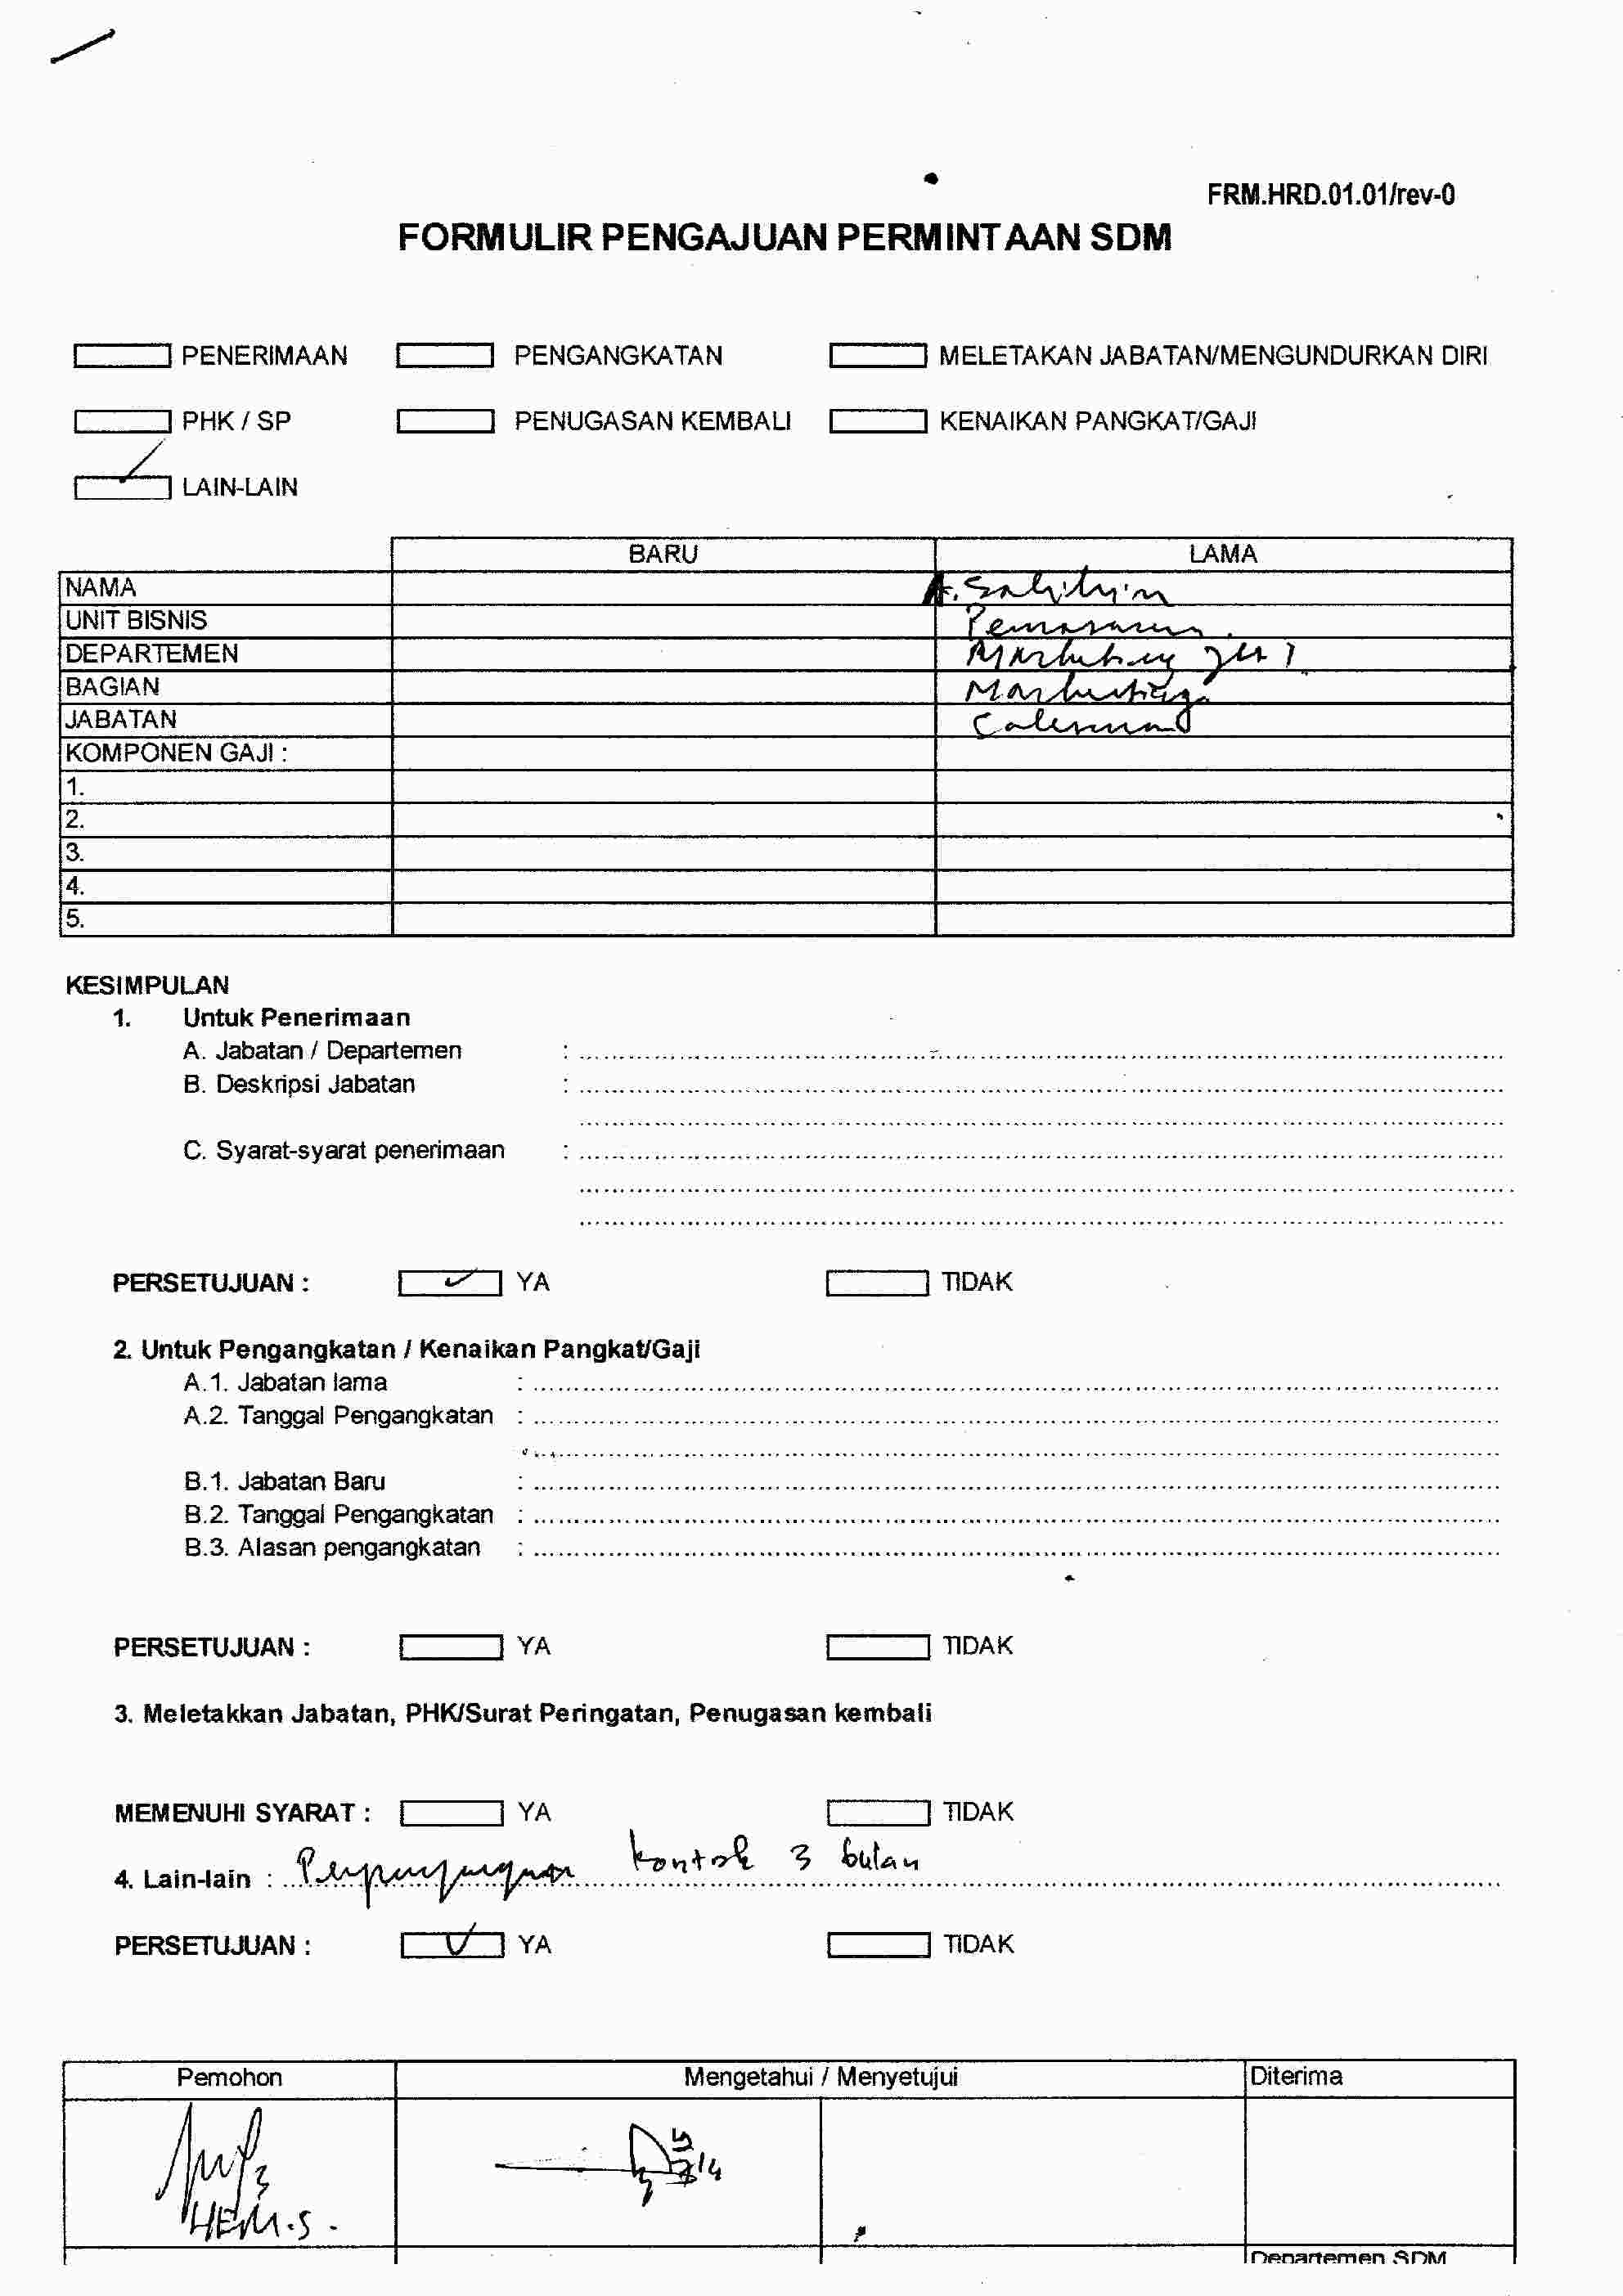 FRM.HRD.01.01/rev-0
FORMULIR PENGAJUAN PERMINTAAN SDM
PENERIMAAN PENGANGKATAN MELETAKAN JABATAN/MENGUNDURKAN DIRI
PHK / SP PENUGASAN KEMBALI KENAIKAN PANGKAT/GAJI
LAIN-LAIN
BARU LAMA
NAMA A.
UNIT BISNIS Pemasaran
DEPARTEMEN Marketing
BAGIAN Marketing
JABATAN Salesman
KOMPONEN GAJI :
1.
2.
3.
4.
5.
KESIMPULAN
1. Untuk Penerimaan
A. Jabatan / Departemen :
B. Deskripsi Jabatan :
C. Syarat-syarat penerimaan :
PERSETUJUAN : YA TIDAK
2. Untuk Pengangkatan / Kenaikan Pangkat/Gaji
A.1. Jabatan lama :
A.2. Tanggal Pengangkatan :
B.1. Jabatan Baru :
B.2. Tanggal Pengangkatan :
B.3. Alasan pengangkatan :
PERSETUJUAN : YA TIDAK
3. Meletakkan Jabatan, PHK/Surat Peringatan, Penugasan kembali
MEMENUHI SYARAT : YA TIDAK
4. Lain-lain : Perpanjangan kontrak 3 bulan
PERSETUJUAN : YA TIDAK
Pemohon Mengetahui / Menyetujui Diterima
HEM.S.
Departemen SDM